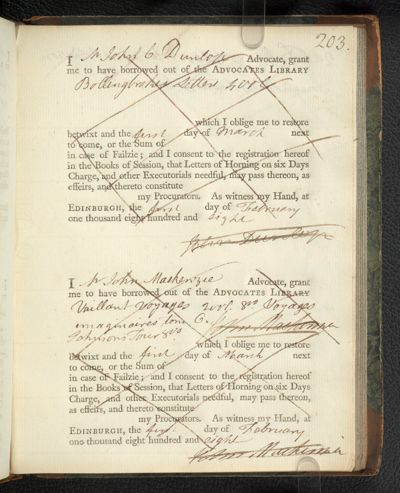 203.
I Mr John C. Dunlop Advocate, grant
me to have borrowed out of the ADVOCATES LIBRARY
Bolingbroke's Letters 2 vols
which I oblige me to restore
betwixt and the first day of March next
to come, or the Sum of
in case of Failzie; and I consent to the registration hereof
in the Books of Session, that Letters of Horning on six Days
Charge, and other Executorials needful, may pass thereon, as
effeirs, and thereto constitute
my Procurators. As witness my Hand, at
EDINBURGH, the first day of February
one thousand eight hundred and eight
John Dunlop
I Mr John Mackenzie Advocate, grant
me to have borrowed out of the ADVOCATES LIBRARY
Vaillant Voyages 2 vols. 8vo Voyages
imaginaires tom 6. John Mackenzie
Johnson's Tour 8vo
which I oblige me to restore
betwixt and the first day of March next
to come, or the Sum of
in case of Failzie; and I consent to the registration hereof
in the Books of Session, that Letters of Horning on six Days
Charge, and other Executorials needful, may pass thereon,
as effeirs, and thereto constitute
my Procurators. As witness my Hand, at
EDINBURGH, the first day of February
one thousand eight hundred and eight
John Mackenzie